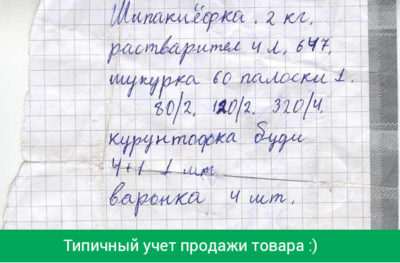 Шипаклёфка. 2 кг.
растварител 4 л, 647,
шукурка 60 палоски 1.
80/2. 120/2. 320/4.
курунтофка буди
4+1 1 шт
варонка 4 шт.
Типичный учет продажи товара :)